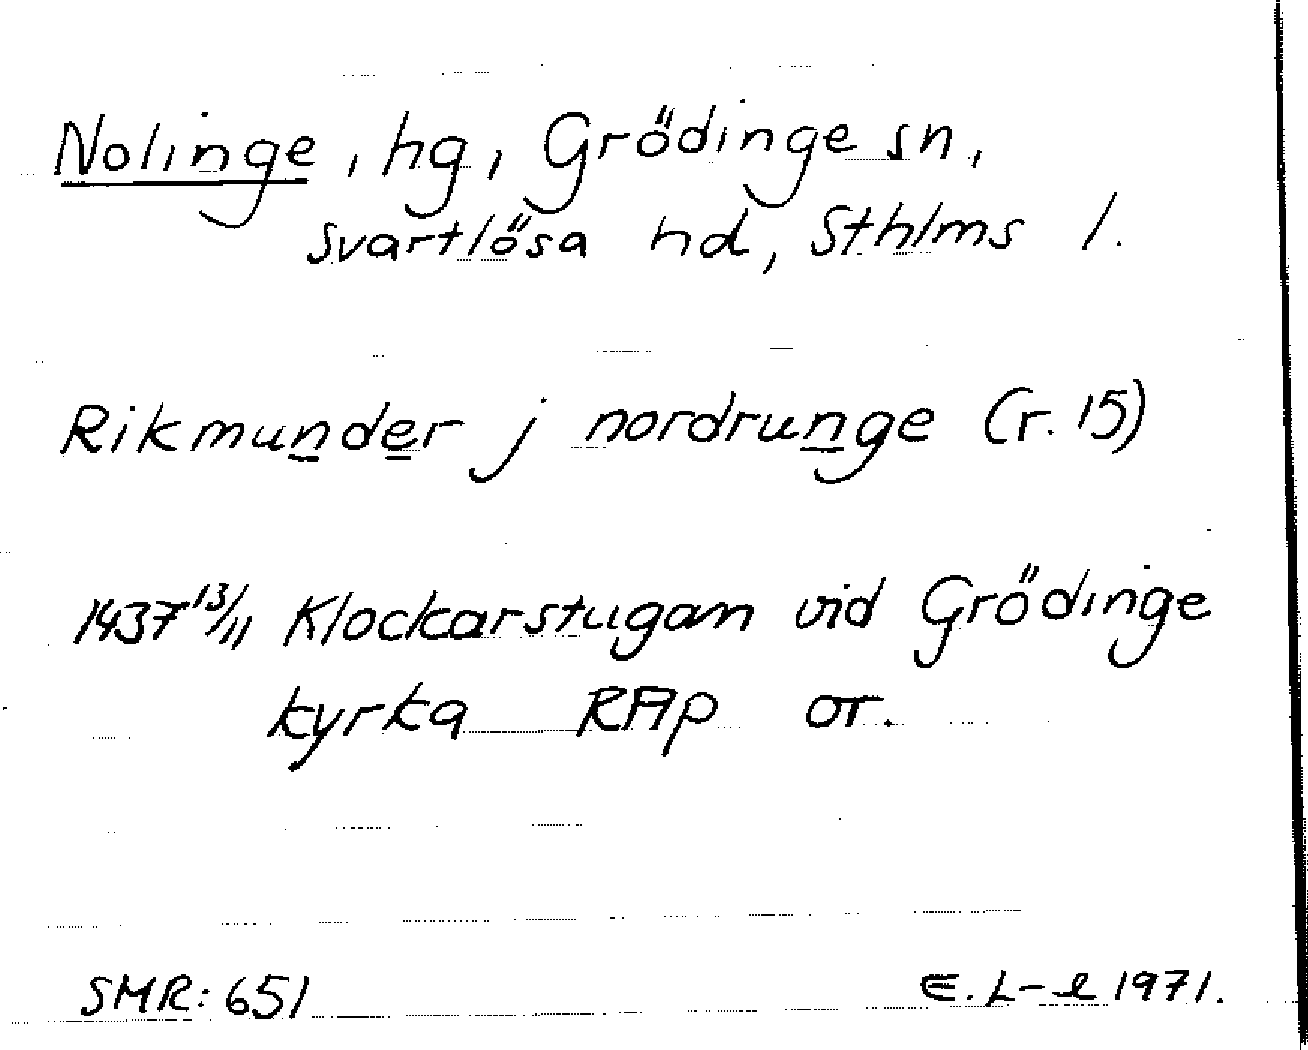 Nolinge, hg, Grödinge sn,
Svartlösa hd, Sthlms l.
Rikmunder j nordrunge (r. 15)
1437 13/11 Klockarstugan vid Grödinge
kyrka RAp or.
SMR: 651
E. L-l 1971.